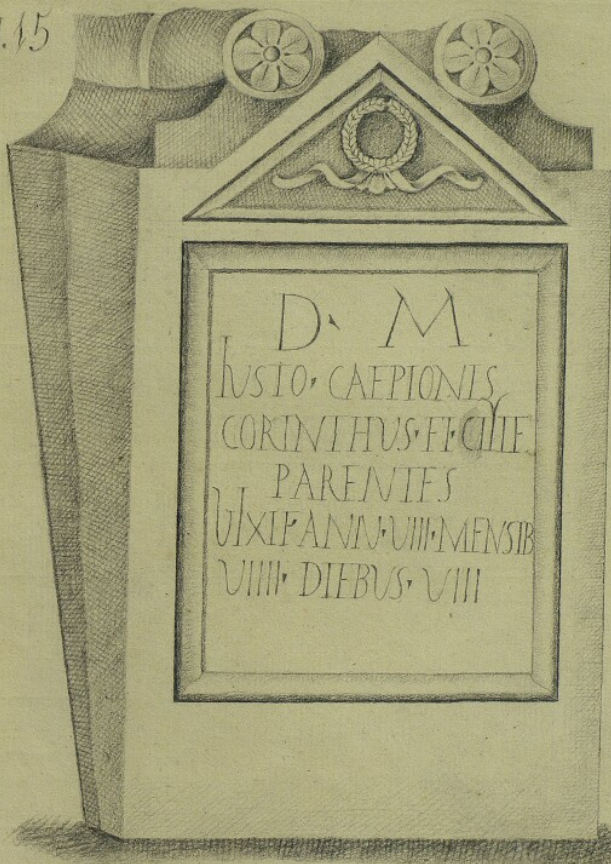 .15
D · M
IUSTO · CAEPIONIS
CORINTHUS · ET · CLYTE
PARENTES
UIXIT · ANN · UIII · MENSIB
UIIII · DIEBUS · UIII